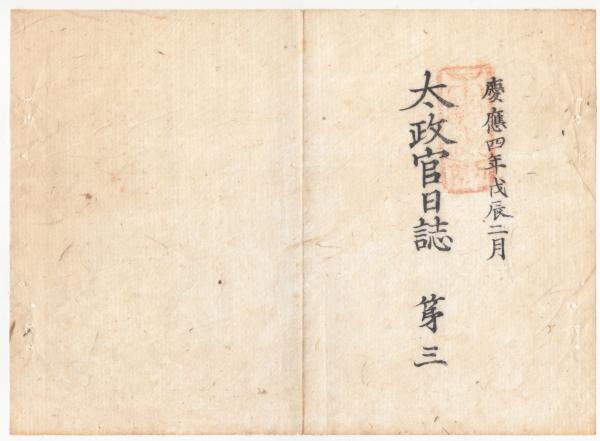 慶應四年戊辰二月
太政官日誌　第三